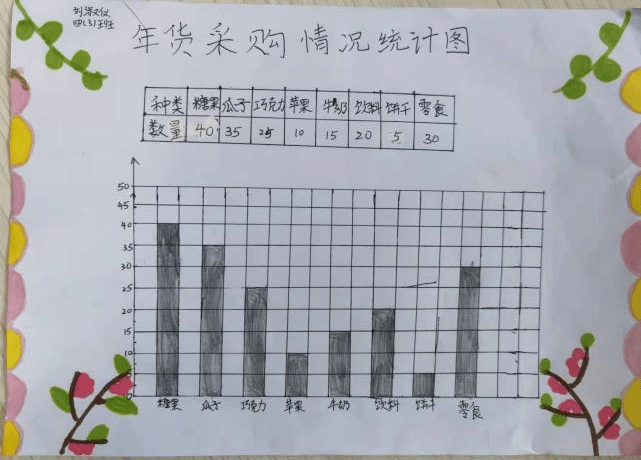 刘淑仪
四(3)班
年货采购情况统计图
种类 糖果 瓜子 巧克力 苹果 牛奶 饮料 饼干 零食
数量 40 35 25 10 15 20 5 30
50
45
40
35
30
25
20
15
10
5
0
糖果 瓜子 巧克力 苹果 牛奶 饮料 饼干 零食